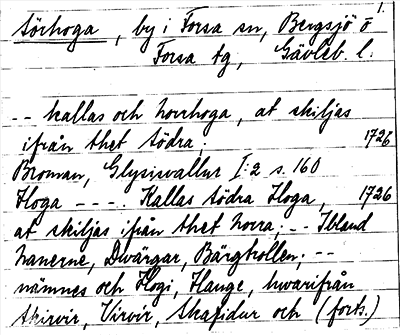 1.
Sörhoga, by i Forsa sn, Bergsjö o
Forsa tg, Gävleb. l.
-- kallas och norrhoga, at skiljas
ifrån thet södra; 1726
Broman, Glysisvallur I:2 s. 160
Hoga - - - . Kallas södra Hoga, 1726
at skiljas ifrån thet norra; -- Ibland
nanerne, Dwärgar, Bärgtrollen; --
nämnes och Hogi, Hauge, hwarifrån
Skirvir, Virvir, Skafidur och (forts.)